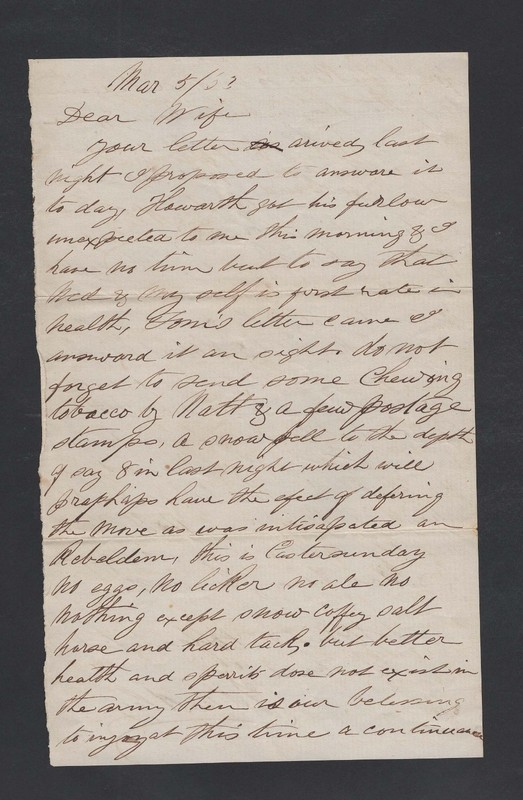 Mar 5/63
Dear Wife
your letter arived last
night I proposed to answare it
to day, Howarth got his furlow
unexpected to me this morning & I
have no tim but to say that
Ned & my self is first rate in
health, Tom's letter came I
answard it an sight. do not
forget to send some chewing
tobacco by Natt & a few postage
stamps, a snow fell to the depth
of say 8 in last night which will
praphips have the efect of defering
the move as was intisapated an
Rebeldem, this is Easter sunday
no eggs, no licker no ale no
nothing except snow cofey salt
horse and hard tack. but better
health and sperrits dose not exist in
the army then is our belessing
to injoy at this time a continuance